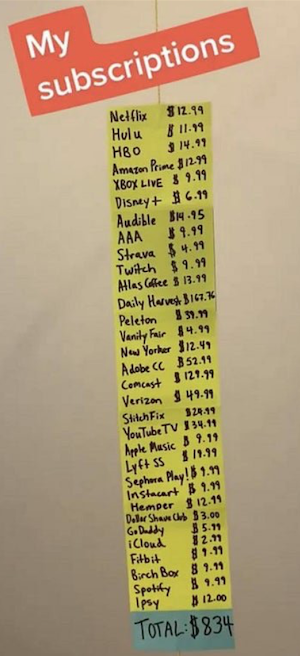 My
subscriptions
Netflix $12.99
Hulu $11.99
HBO $14.99
Amazon Prime $12.99
XBOX LIVE $9.99
Disney+ $6.99
Audible $14.95
AAA $9.99
Strava $4.99
Twitch $9.99
Atlas Coffee $13.99
Daily Harvest $167.76
Peleton $39.99
Vanity Fair $4.99
New Yorker $12.49
Adobe CC $52.99
Comcast $129.99
Verizon $49.99
StitchFix $29.99
YouTube TV $34.99
Apple Music $9.99
Lyft SS $19.99
Sephora Play! $9.99
Instacart $9.99
Hemper $12.99
Dollar Shave Club $3.00
GoDaddy $5.99
iCloud $2.99
Fitbit $9.99
Birch Box $9.99
Spotify $9.99
Ipsy $12.00
TOTAL: $834